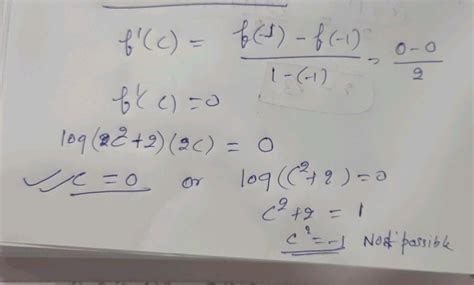 f'(c) = f(-1) - f(-1) / 1-(-1) = 0-0 / 2
f'(c) = 0
log(2c²+2)(2c) = 0
✓ c = 0 or log(c²+2) = 0
c²+2 = 1
c² = -1 Not possible